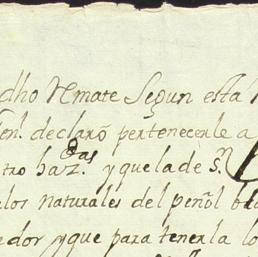 dho Remate Segun esta
en.l declaró pertenecerle a
tro haz.das y que la de S.n
los naturales del peñol
dor y que para tenerla lo